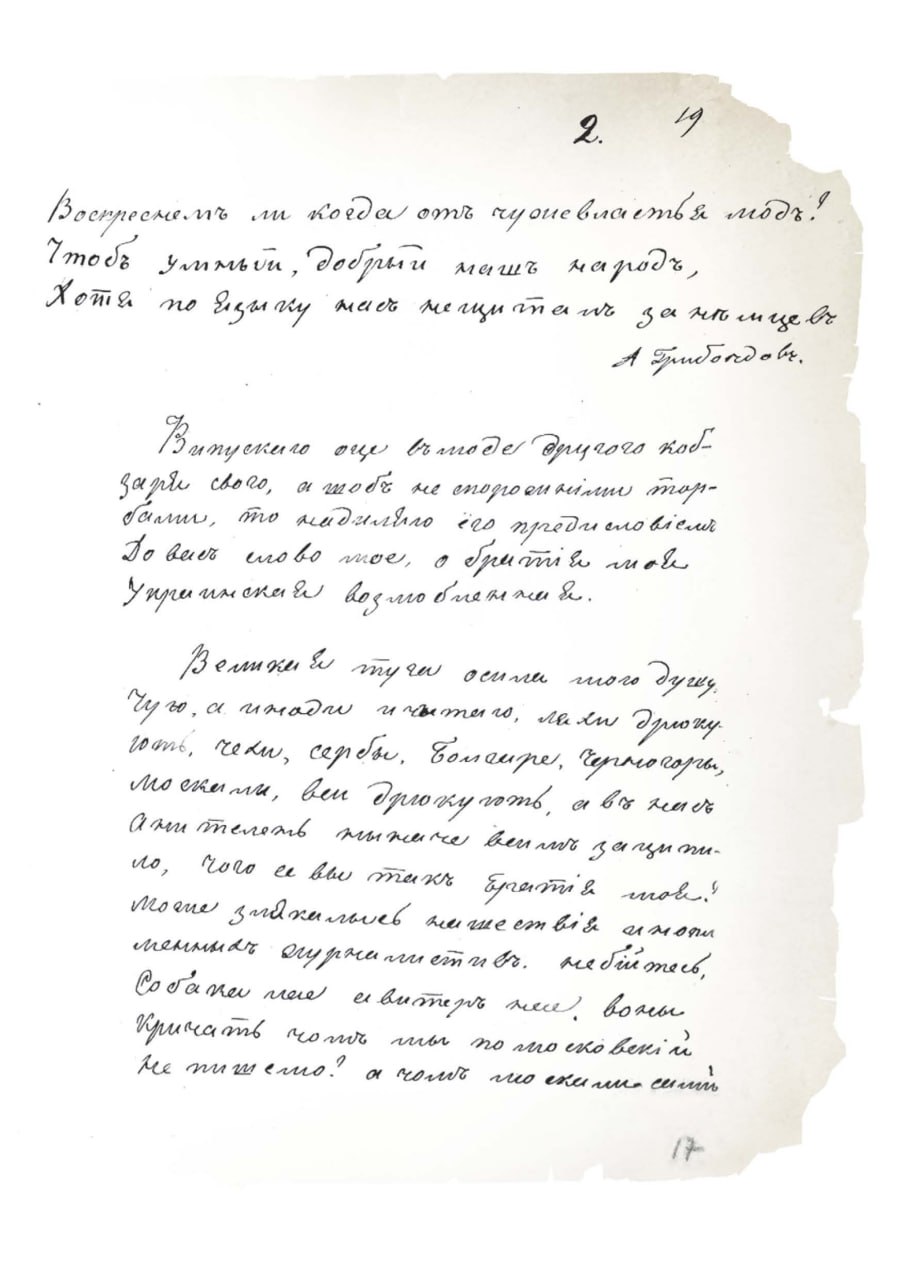 2. 19
Воскреснемъ ли когда отъ чужевластья модъ?
Чтобъ умный, добрый нашъ народъ,
Хотя по языку насъ нещиталъ за нѣмцевъ
А Грибоѣдовъ.
Випускаю оце въ люде другого коб-
заря свого, а щобъ не спорожніми тор-
бами, то надиляю ёго предисловіемъ
До васъ слово мое, о братія моя
Украинская возлюбленная.
Великая туга осила мою душу.
Чую, а иноди и читаю, ляхи друку-
ють, чехи, сербы, болгаре, черногоры,
москали, вси друкують, а въ насъ
ани телень ныначе всимъ заципи-
ло, чого се вы такъ братія моя?
може злякалысь нашествія инопл
менныхъ журналистивъ. небійтесь,
Собака лае авитеръ несе, воны
Кричать чомъ мы по московскій
не пишемо? а чомъ москали сами
17